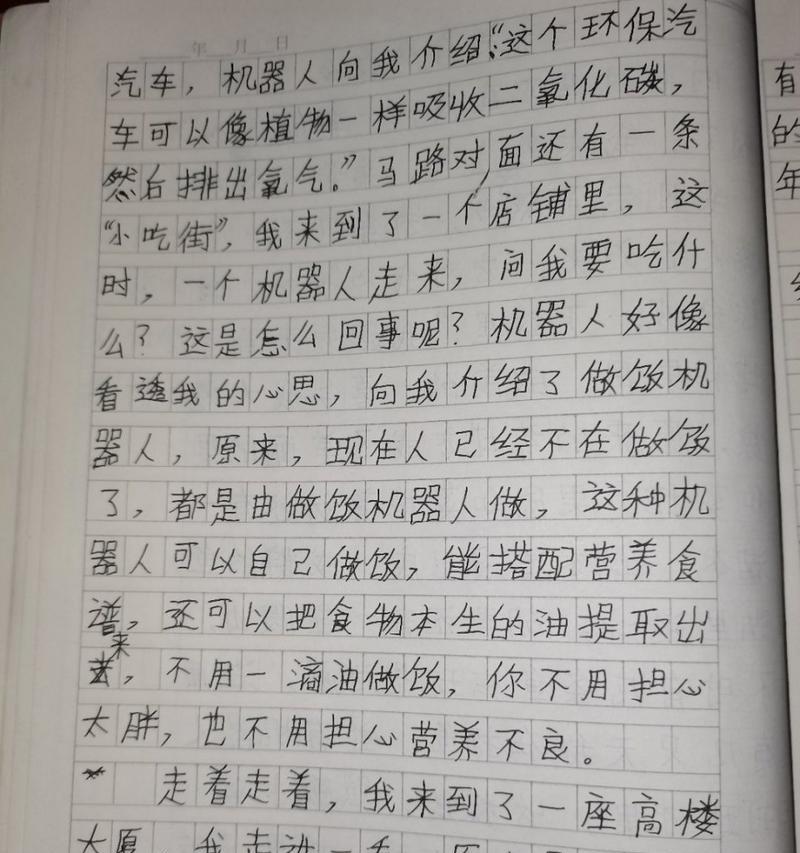 年 月 日
汽车，机器人向我介绍：“这个环保汽
车可以像植物一样吸收二氧化碳，
然后排出氧气。”马路对面还有一条
“小吃街”，我来到了一个店铺里，这
时，一个机器人走来，问我要吃什
么？这是怎么回事呢？机器人好像
看透我的心思，向我介绍了做饭机
器人，原来，现在人已经不在做饭
了，都是由做饭机器人做，这种机
器人可以自己做饭，能搭配营养食
谱，还可以把食物本生的油提取出
来，不用一滴油做饭，你不用担心
太胖，也不用担心营养不良。
走着走着，我来到了一座高楼
大厦，我走进一看，原
有
的
年